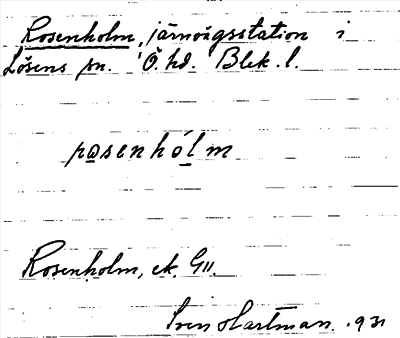 Rosenholm, järnvägsstation i
Lösens sn. Ö. hd. Blek. l.
rosenhólm
Rosenholm, ek. G11.
Sven Hartman. 1931